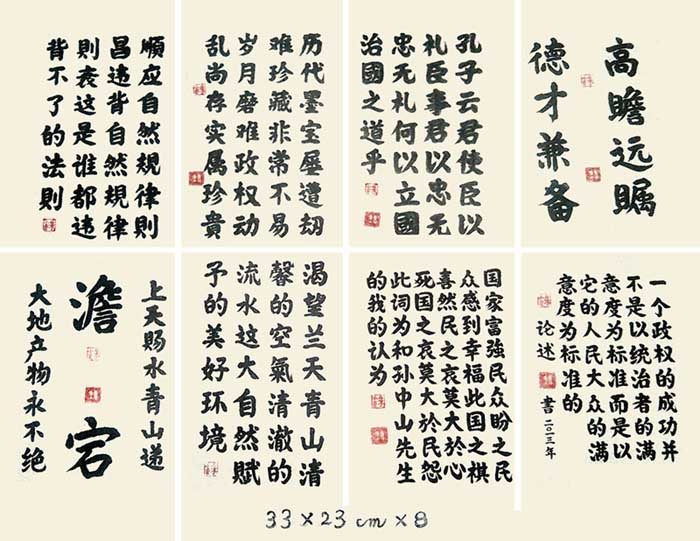 高瞻远瞩
德才兼备
孔子云君使臣以
礼臣事君以忠无
忠无礼何以立國
治國之道乎
历代墨宝屡遭劫
难珍藏非常不易
岁月磨难政权动
乱尚存实属珍貴
順应自然規律則
昌违背自然規律
則衰这是谁都违
背不了的法則
一个政权的成功并
不是以统治者的满
意度为标准而是以
它的人民大众的满
意度为标准的
论述 書二〇一三年
国家富強民众盼之民
众感到幸福此国之祺
喜然民之哀莫大於心
死国之哀莫大於民怨
此词为和孙中山先生
的我的认为
渴望兰天青山清
馨的空氣清澈的
流水这大自然赋
予的美好环境
上天赐水青山递
澹宕
大地产物永不绝
33×23cm×8